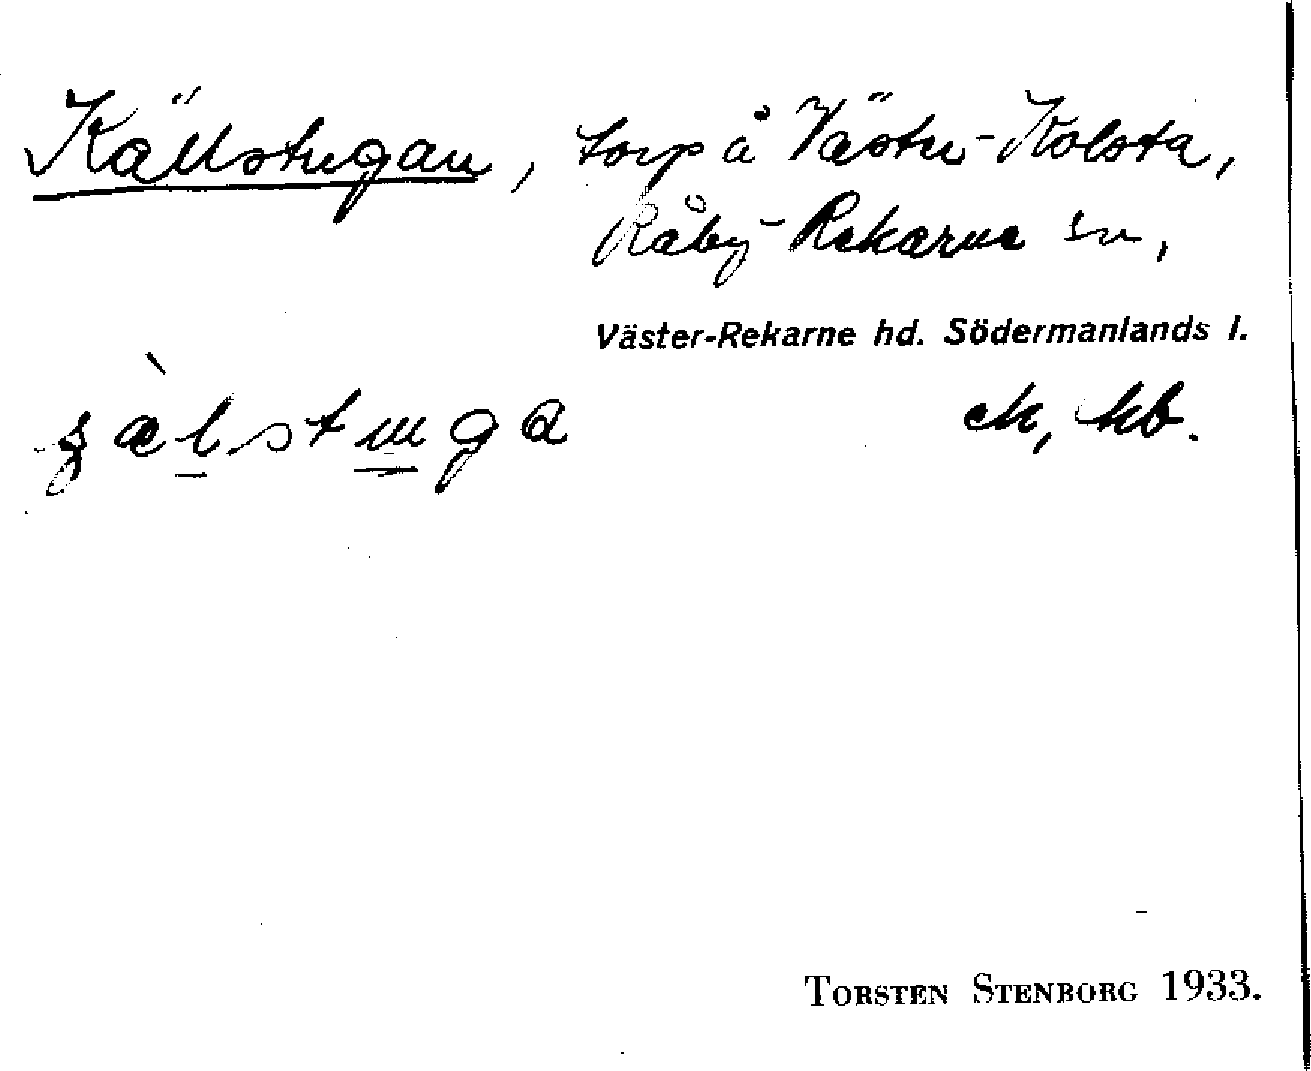 Källstugan, torp å Väster-Kolsta,
Råby-Rekarne sn,
Väster-Rekarne hd. Södermanlands l.
ek, kb.
TORSTEN STENBORG 1933.